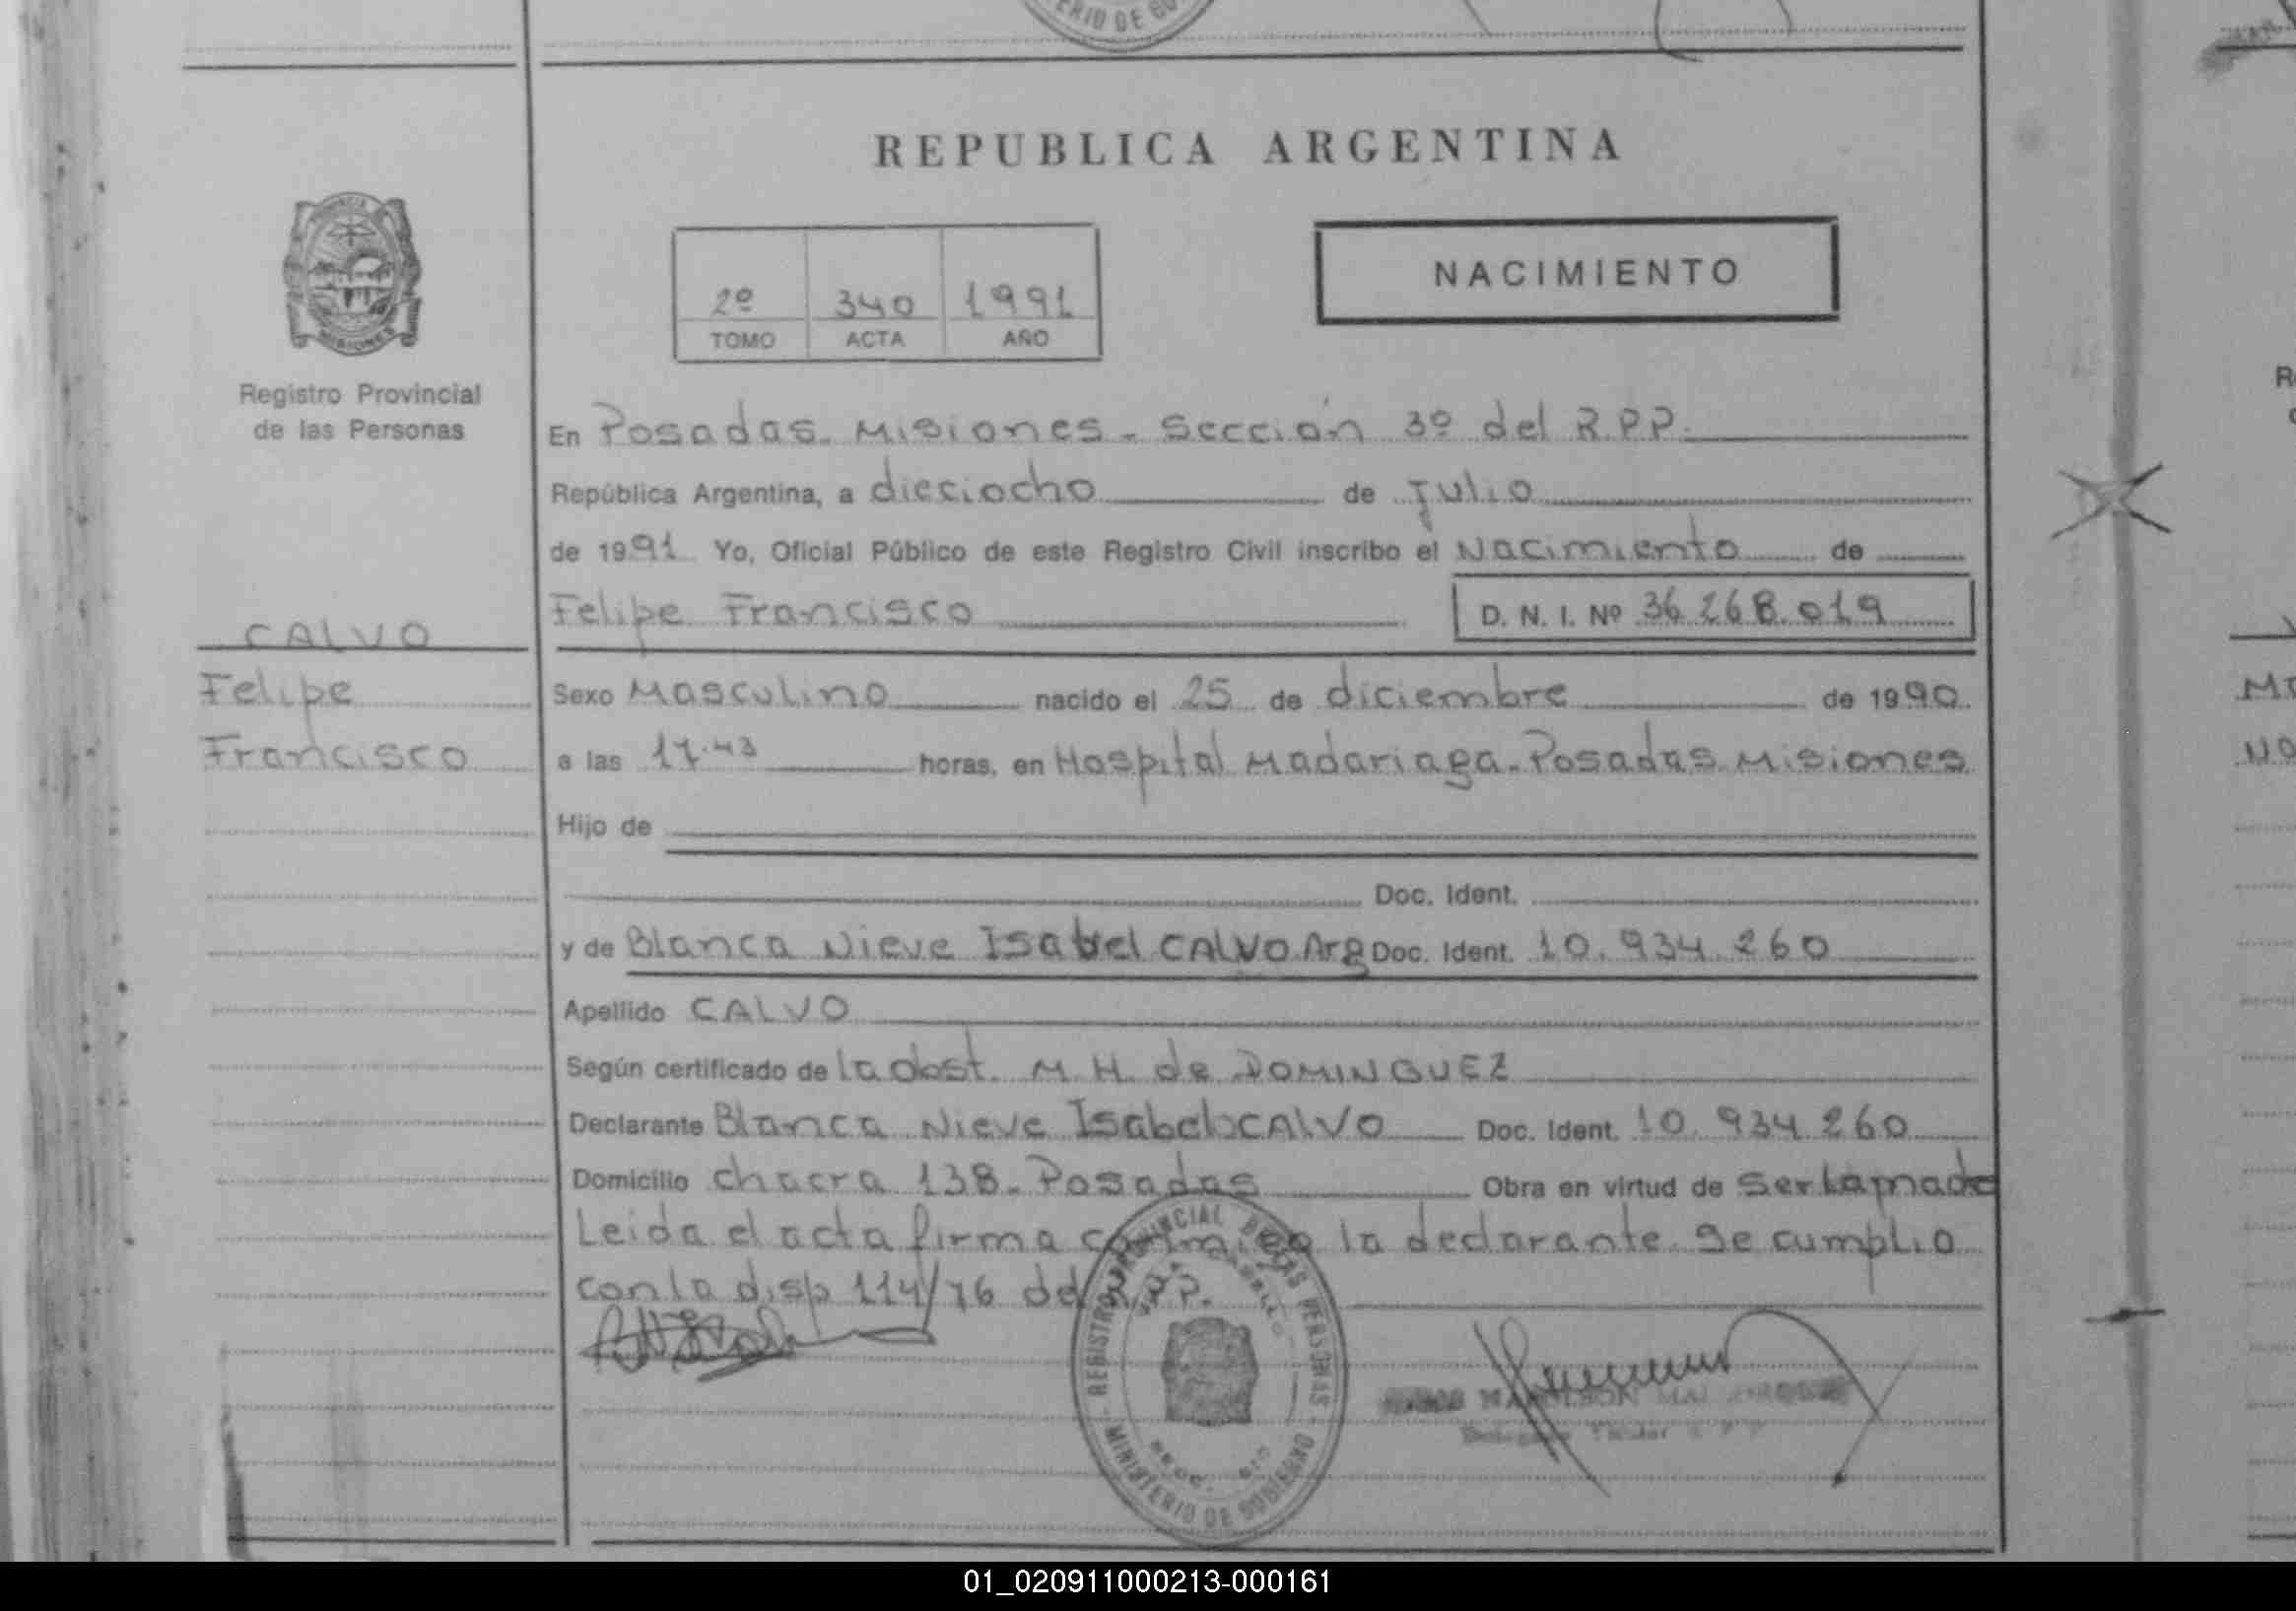 REPUBLICA ARGENTINA
NACIMIENTO
2º 340 1991
TOMO ACTA AÑO
Registro Provincial
de las Personas
En Posadas. Misiones - Sección 3º del R.P.P.
República Argentina, a dieciocho de julio
de 1991 Yo, Oficial Público de este Registro Civil inscribo el Nacimiento de
Felipe Francisco D. N. I. Nº 36.268.019
CALVO
Felipe
Francisco
Sexo Masculino nacido el 25 de diciembre de 1990
a las 17.43 horas, en Hospital Madariaga-Posadas Misiones
Hijo de
Doc. Ident.
y de Blanca Nieve Isabel CALVO Arg Doc. Ident. 10.934.260
Apellido CALVO
Según certificado de la obst. M. H. de DOMINGUEZ
Declarante Blanca Nieve Isabel CALVO Doc. Ident. 10.934.260
Domicilio chacra 138- Posadas Obra en virtud de ser la madre
Leida el acta firma conmigo la declarante se cumplio
con la disp 114/76 del R.P.P.
REGISTRO PROVINCIAL DE LAS PERSONAS
MINISTERIO DE GOBIERNO
01_020911000213-000161